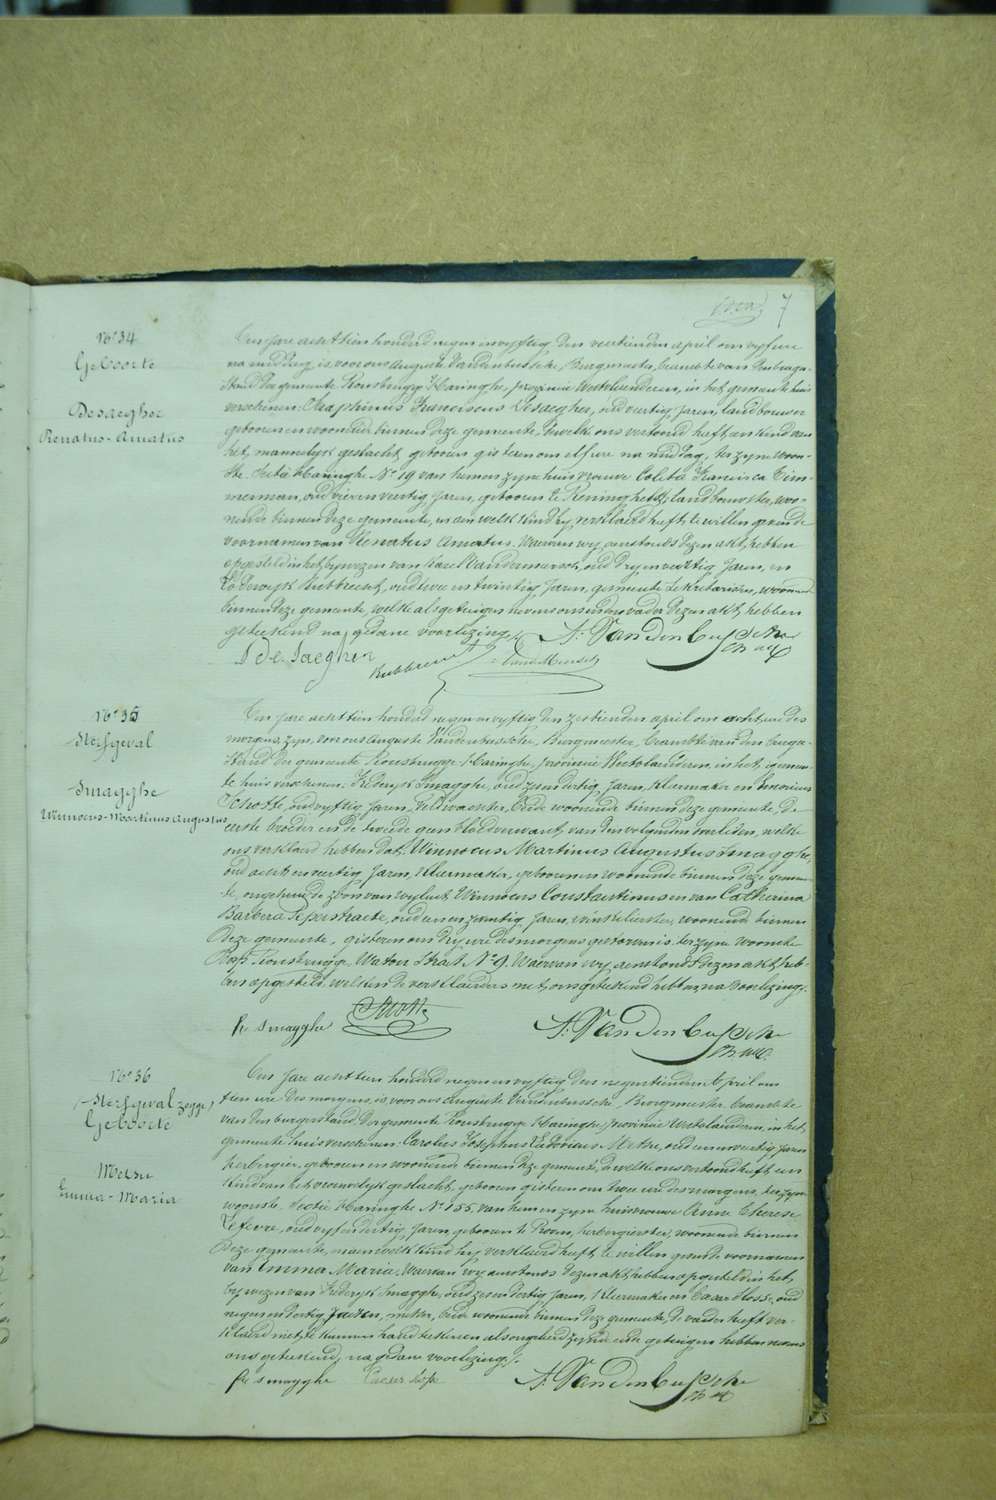 7
No 34
Geboorte
Desaegher
Renatus-Amatus
Ten jare achttien honderd negen en vyftig den veertienden april om vyf ure
na middag, is voor ons Auguste Vandenbussche, Burgmeester, beambte van den burger-
stand der gemeente Rousbrugge-Haringhe, provincie Westvlaenderen, in het gemeente huis
verschenen: Seraphinus Franciscus Desaegher, oud veertig jaren, landbouwer
geboren en woonende binnen deze gemeente, dewelke ons vertoond heeft een kind van
het mannelyk geslacht, geboren gisteren om elf ure na middag, ter zyne woon-
ste Sectie Haringhe No 19 van hem en zyne huisvrouwe Coleta Francisca Tim-
merman, oud vier en veertig jaren, geboren te Reninghelst, landbouwster, woo-
nende binnen deze gemeente, en aen welk kind hy verklaerd heeft te willen geven de
voornamen van Renatus Amatus. Waervan wy aenstonds dezen akt hebben
opgesteld in het bywezen van Karel Vandermeersch, oud dry en veertig jaren, en
Lodewyk Rubbrecht, oud twee en twintig jaren, gemeente sekretarissen, woonende
binnen deze gemeente, welke als getuigen nevens ons en den vader dezen akt hebben
geteekend na gedane voorlezing.
S de Saegher
A. Vandenbussche
No 35
Sterfgeval
Smagghe
Winnocus-Martinus Augustus
Ten jare achttien honderd negen en vyftig den zestienden april om acht ure des
morgens, zyn voor ons Auguste Vandenbussche, Burgmeester, beambte van den burger-
stand der gemeente Rousbrugge-Haringhe, provincie Westvlaenderen, in het gemeen-
te huis verschenen: Frederyk Smagghe, oud zes en dertig jaren, kleermaker en
Schotte, oud vyftig jaren, veldwachter, beide woonende binnen deze gemeente, de
eerste broeder en de tweede geen bloedverwant van den volgenden overleden, welke
ons verklaerd hebben dat: Winnocus Martinus Augustus Smagghe,
oud acht en veertig jaren, kleermaker, geboren en woonende binnen deze gemeen-
te, ongehuwde zoon van wylent Winnocus Constantinus en van Catharina
Barbera Depestraete, oud een en zeventig jaren, winkelierster, woonende binnen
deze gemeente, gisteren om dry ure des morgens gestorven is ter zyne woonste
Rousbrugge Watou Straet No 9. Waervan wy aenstonds dezen akt heb-
ben opgesteld, welken de verklaerders met ons geteekend hebben na voorlezing.
Fr Smagghe
Schotte
A. Vandenbussche
No 36
Sterfgeval zegge
Geboorte
Metsu
Emma-Maria
Ten jare achttien honderd negen en vyftig den negentienden April om
tien ure des morgens, is voor ons Auguste Vandenbussche, Burgmeester, beambte
van den burgerstand der gemeente Rousbrugge-Haringhe, provincie Westvlaenderen, in het
gemeente huis verschenen: Carolus Josephus Ludovicus Metsu, oud een en veertig jaren
herbergier, geboren en woonende binnen deze gemeente, dewelke ons vertoond heeft een
kind van het vrouwelyk geslacht, geboren gisteren om twee ure des morgens, ter zyne
woonste, Sectie Haringhe No 155, van hem en zyne huisvrouwe Anne Therese
Lefevre, oud vyf en dertig jaren, geboren te Proven, herbergierster, woonende binnen
deze gemeente, en aen welk kind hy verklaerd heeft te willen geven de voornamen
van Emma Maria. Waervan wy aenstonds dezen akt hebben opgesteld in het
bywezen van Frederyk Smagghe, oud zes en dertig jaren, kleermaker en Cesar Hosse, oud
negen en dertig jaren, metser, beide woonende binnen deze gemeente, de vader heeft ver-
klaerd niet te kunnen handteekenen als ongeleerd zynde en de getuigen hebben nevens
ons geteekend, na gedane voorlezing.
Fr Smagghe
A. Vandenbussche